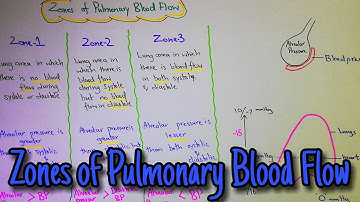 Zones of Pulmonary Blood Flow
Zone-1
Lung area in
which there
is no blood
flow during
systole or diastole
Alveolar pressure is
greater
than both systolic
Zone-2
Lung area in
which there is
blood flow
during systole
but no blood
flow in diastole
Alveolar pressure is
greater
Zone-3
Lung area in which
there is blood flow
in both systole
& diastole
Alveolar pressure is
lesser
than both systolic
& diastolic
BP
Alveolar
Pressure
Blood
10/ mmHg
-15
Lungs
heart
0 mmHg
Zones of Pulmonary Blood Flow